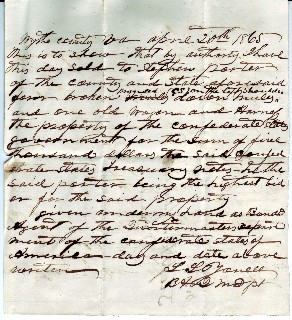 Wythe county Va april 20th 1865
This is to show that by authority I have
this day sold to Stephen porter
of the county and State aforesaid
four broken down mules
branded CS on the left shoulder
and one old wagon and Harness
the property of the confederate States
Government for the sum of five
thousand dollars the said confed
erate States treasury notes he the
said porter being the highest bid
er for the said property
Given under my hand as Bonded
Agent of the Quartermasters depart
ment of the confederate States of
America day and date above
written